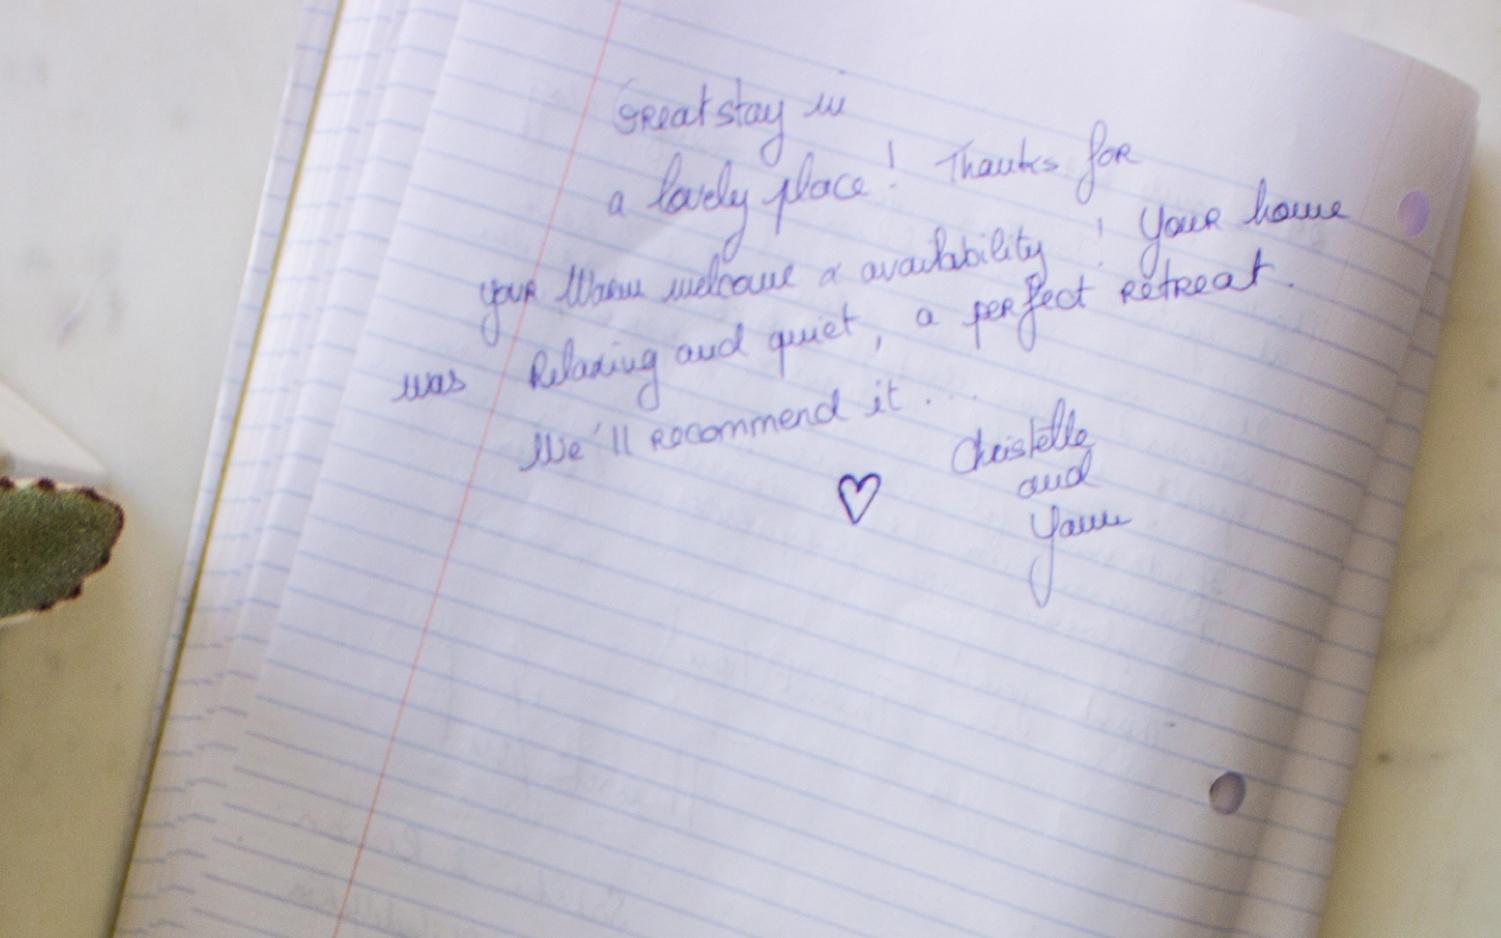 Great stay in
a lovely place! Thanks for
your warm welcome & availability! Your home
was Relaxing and quiet, a perfect retreat.
We'll recommend it...
Christelle
and
Yann